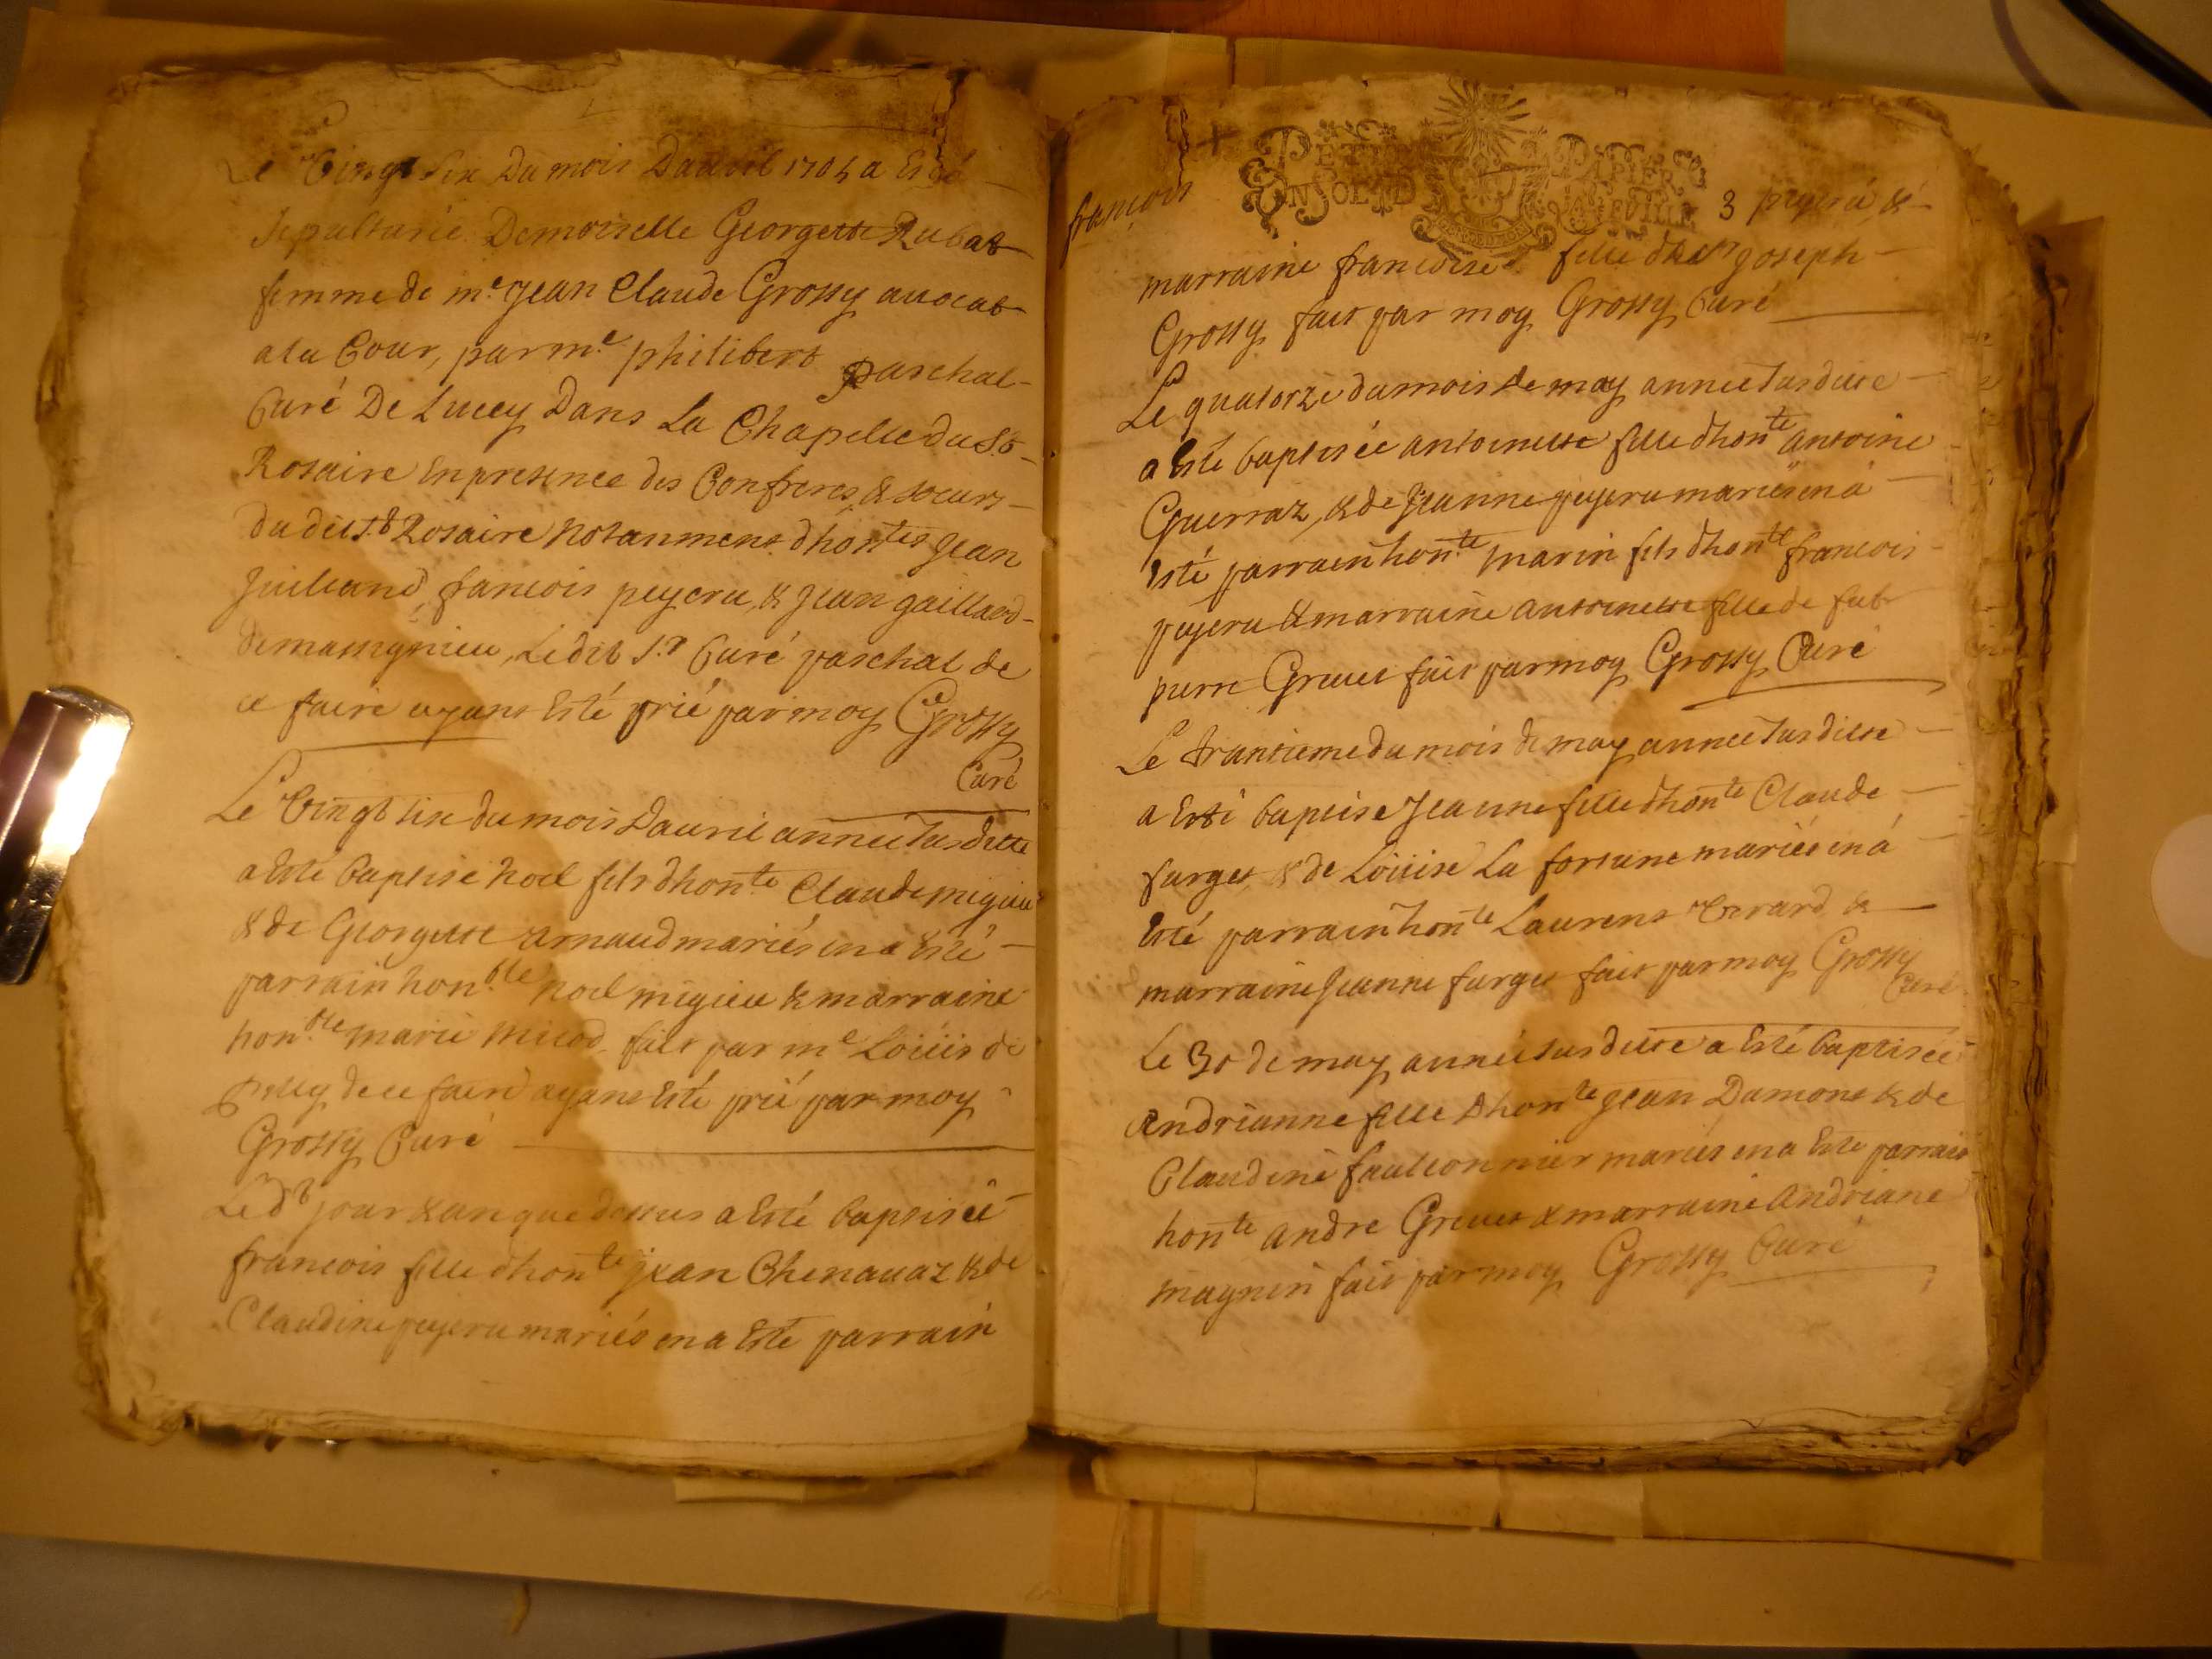 Le Vingt six Du mois Dauvil 1704 a Esté
sepulturée Demoiselle Georgette Rubat
femme de me. Jean Claude Grossy auocat
a la Cour, par me. philibert paschal
Curé De Lucey Dans La Chapelle du St.
Rosaire En presence des Confreres & soeurs
du dit St. Rosaire notanment dhontes Jean
Juilland, francois peycru, & Jean gaillard
de massignieu, Ledit Sr. Curé paschal de
ce faire ayant Esté prié par moy Grossy
Curé
Le Vingt six du mois Dauril année susditte
a Esté baptise noel fils dhonte. Claude migieu
& de Georgette arnaud mariés en a Esté
parrain honble. noel migieu & marraine
honble. marie faict par me Loüis de
de ce faire ayant Esté prié par moy
Grossy Curé
Ledt jour & an que dessus a Esté baptisée
francois fille dhonte Jean Chenauaz & de
Claudine peycru mariés en a Esté parrain
PETIT PAPIER
UN SOL LA FEUILLE
francois 3 peycru &
marraine francoise fille dhe Joseph
Grossy fait par moy Grossy Curé
Le quatorze du mois de may année susditte
a Esté baptisée antoinette fille dhonte antoine
Guerraz, & de Jeanne peycru mariés en a
Esté parrain honte marin fils dhonte francois
peycru & marraine antoinette fille de fut
pierre Greuet fait par moy Grossy Curé
Le trantieme du mois de may année susditte
a Esté baptise Jeanne fille dhonte Claude
furget & de Loüise La fortune mariés en a
Esté parrain honte Laurens Verard &
marraine Jeanne furget fait par moy Grossy
Curé
Le 30 de may année susditte a Esté baptisée
Andrianne fille Dhonte Jean Dumont & de
Claudine faulconnier mariés en a Este parrain
honte andre Greuet & marraine andriane
magnin fait par moy Grossy Curé